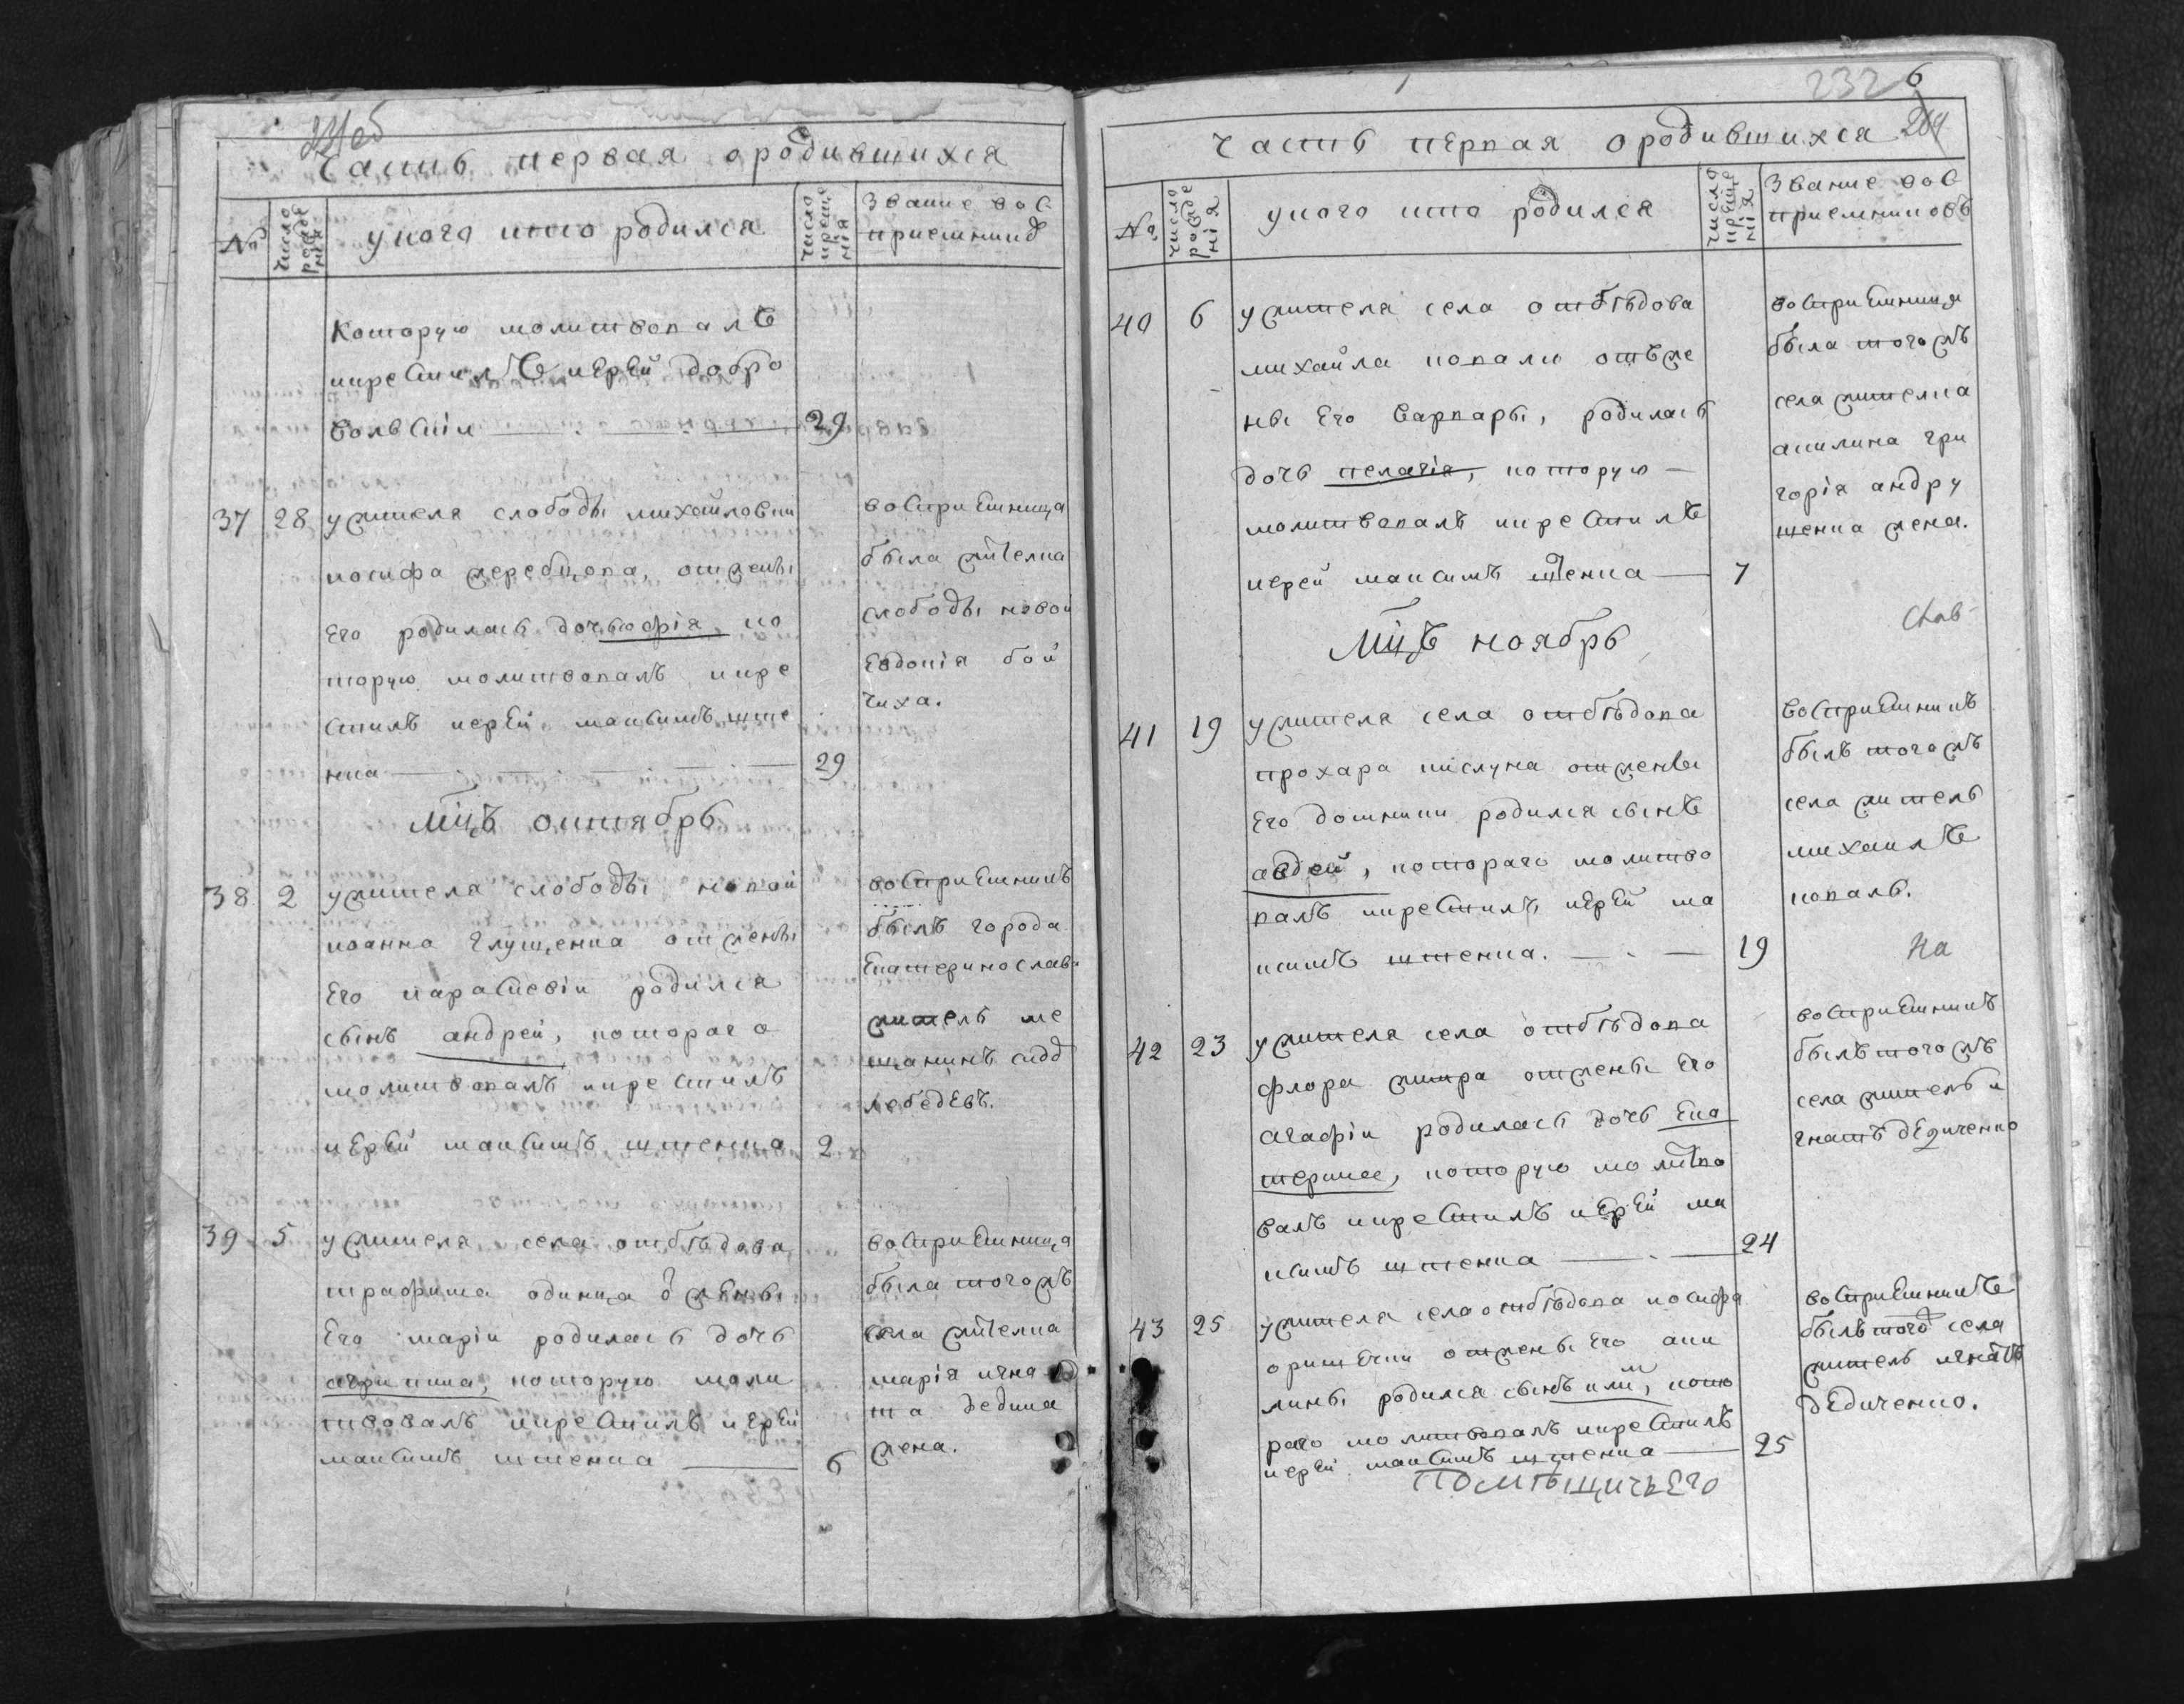 Часть первая о родившихся
№
число рожденія
у кого кто родился
число крещенія
Званіе вос
приемник
которую молитвовалъ
и крестилъ иерей добро
вольскій
29
37 28 у жителя слободы михайловки
иосифа жеребцова, от жены
его родилась дочь софія ко
торую молитвовалъ и кре
стилъ иерей максимъ ште
нка 29
восприемница
была жителка
слободы новой
Евдокія бой
чиха.
Мцъ октябрь
38 2 у жителя слободы новой
иоанна глущенка от жены
его параскевіи родился
сынъ андрей, котораго
молитвовалъ и крестилъ
иерей максимъ штенка 2
восприемникъ
былъ города
Екатеринослав
житель ме
щанинъ
лебедевъ.
39 5 у жителя села отбѣдова
трофима одинца от жены
его маріи родилась дочь
агрипина, которую моли
твовалъ и крестилъ иерей
максимъ штенка 6
восприемница
была того жъ
села жителка
марія игна
та дедика
жена.
232 6
Часть первая о родившихся
№
число рожденія
у кого кто родился
число крещенія
Званіе вос
приемниковъ
40 6 у жителя села отбѣдова
михайла коваля отъ же
ны его варвары, родилась
дочь пелагія, которую
молитвовалъ и крестилъ
иерей максимъ штенка 7
восприемница
была того жъ
села жителка
акилина гри
горія андру
щенка жена.
Мцъ ноябрь
41 19 у жителя села отбѣдова
прохара кислуна от жены
его домникии родился сынъ
авдей, котораго молитво
валъ и крестилъ иерей ма
ксимъ штенка. 19
восприемникъ
былъ того жъ
села житель
михаилъ
коваль.
На
42 23 у жителя села отбѣдова
флора от жены его
агафіи родилась дочь Ека
терина, которую молитво
валъ и крестилъ иерей ма
ксимъ штенка 24
восприемникъ
былъ того жъ
села житель и
гнатъ дедиченко
43 25 у жителя села отбѣдова иосифа
от жены его аки
лины родился сынъ клим, кото
раго молитвовалъ и крестилъ
иерей максимъ штенка 25
восприемникъ
былъ того села
житель игнатъ
дедиченко.
Помѣщичьего